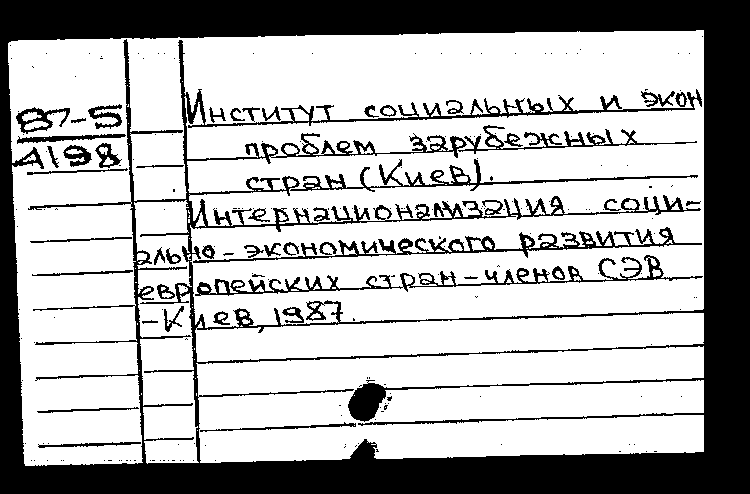 87-5
4198
Институт социальных и экон
проблем зарубежных
стран (Киев).
Интернационализация соци-
ально-экономического развития
европейских стран-членов СЭВ
-Киев, 1987.